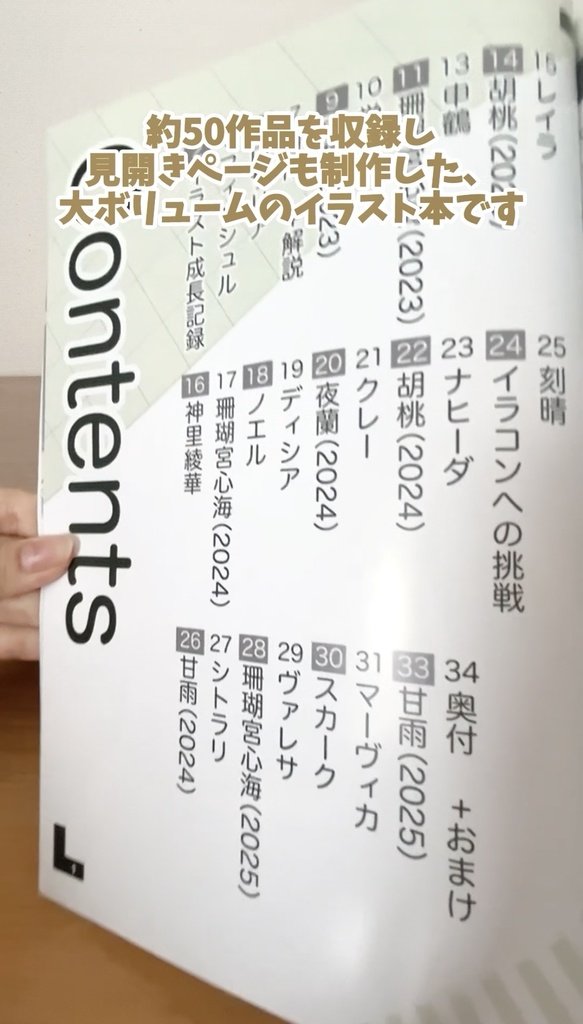 約50作品を収録し
見開きページも制作した、
大ボリュームのイラスト本です
Contents
スト成長記録
シュル
解説
9
23)
10
11 珊
(2023)
13 申鶴
14 胡桃(202
15 レイラ
16 神里綾華
17 珊瑚宮心海(2024)
18 ノエル
19 ディシア
20 夜蘭(2024)
21 クレー
22 胡桃(2024)
23 ナヒーダ
24 イラコンへの挑戦
25 刻晴
26 甘雨(2024)
27 シトラリ
28 珊瑚宮心海(2025)
29 ヴァレサ
30 スカーク
31 マーヴィカ
33 甘雨(2025)
34 奥付 +おまけ